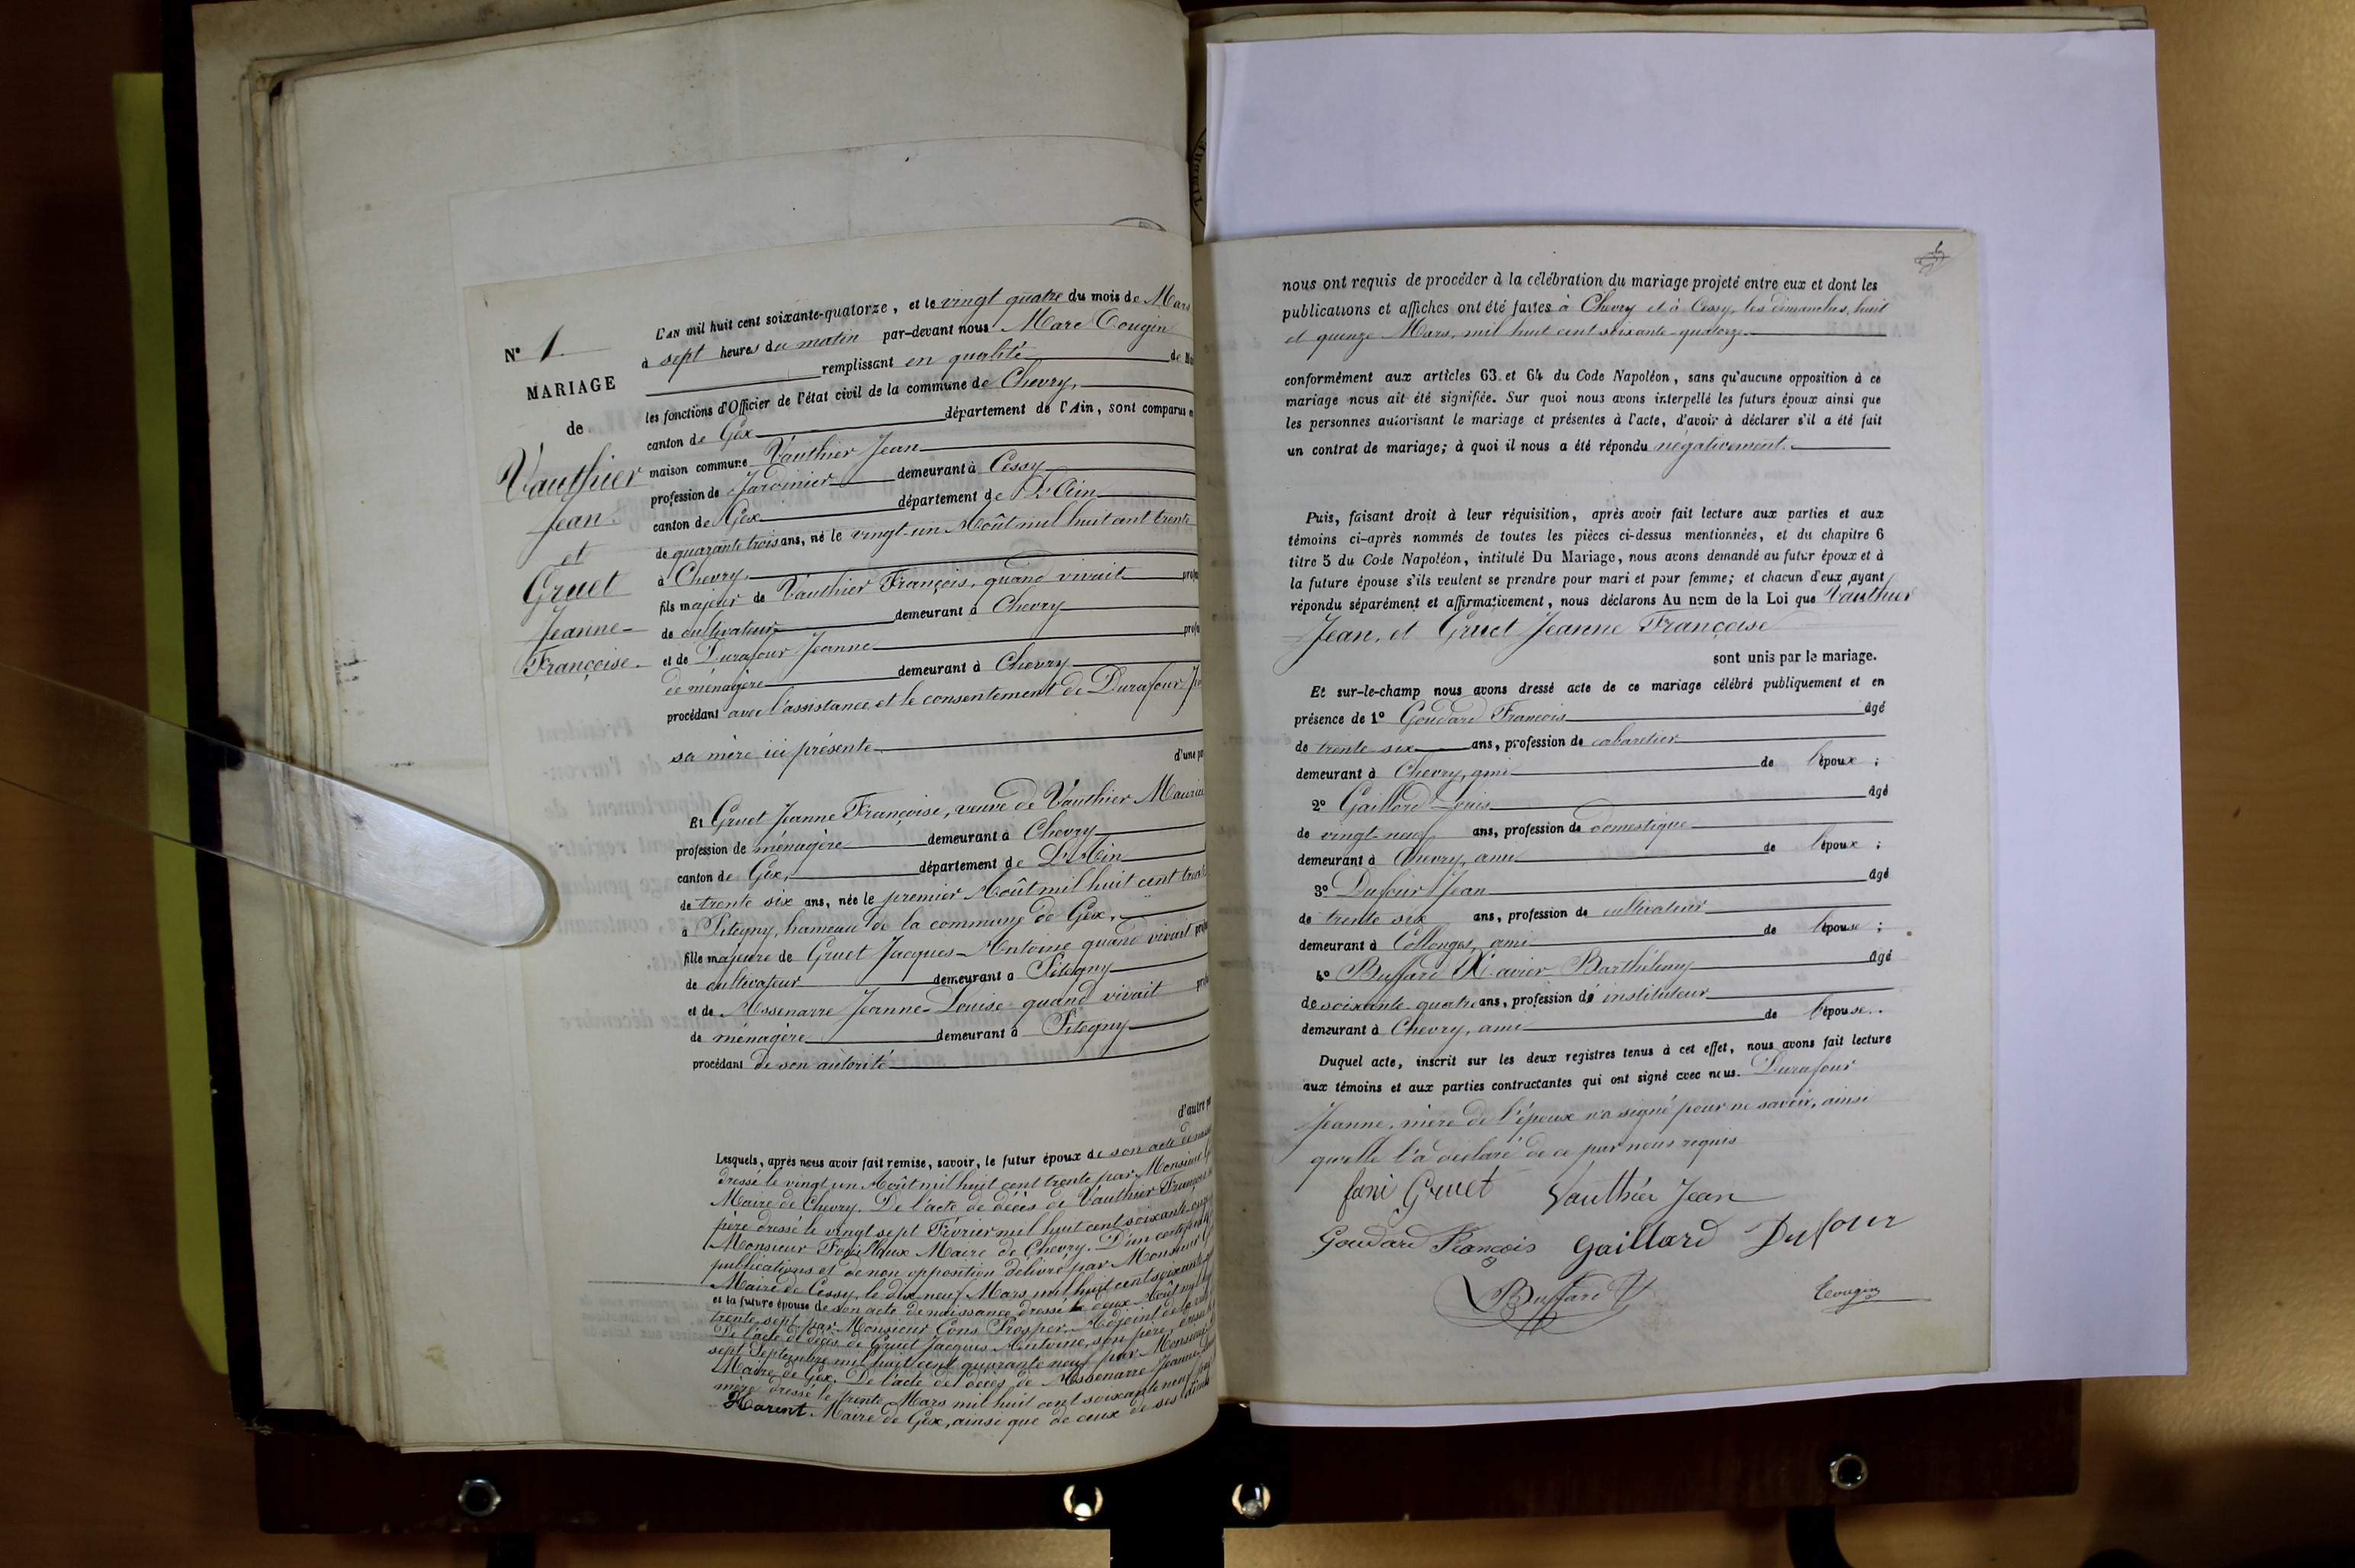 N° 1
MARIAGE
de
Vauthier
Jean
et
Gruet
Jeanne-
Françoise.
L'AN mil huit cent soixante-quatorze, et le vingt quatre du mois de Mars
à sept heures du matin par-devant nous Marc Cougin
remplissant en qualité de
les fonctions d'Officier de l'état civil de la commune de Chevry,
canton de Gex département de l'Ain, sont comparus
maison commune Vauthier Jean
profession de Jardinier demeurant à Cessy
canton de Gex département de L'Ain
de quarante trois ans, né le vingt-un Août mil huit cent trente
à Chevry,
fils majeur de Vauthier François, quand vivait
de cultivateur demeurant à Chevry
et de Durafour Jeanne
de ménagère demeurant à Chevry
procédant avec l'assistance et le consentement de Durafour
sa mère ici présente
d'une
Et Gruet Jeanne Françoise, veuve de Vauthier
profession de ménagère demeurant à Chevry
canton de Gex, département de L'Ain
de trente six ans, née le premier Août mil huit cent
à Pitegny, hameau de la commune de Gex,
fille majeure de Gruet Jacques-Antoine quand vivait
de cultivateur demeurant à Pitegny
et de Assenarre Jeanne-Louise quand vivait
de ménagère demeurant à Pitegny
procédant de son autorité
d'autre
Lesquels, après nous avoir fait remise, savoir, le futur époux de son acte de
dressé le vingt un Août mil huit cent trente par Monsieur
Maire de Chevry. De l'acte de décès de Vauthier
père dressé le vingt sept Février mil huit cent soixante
Monsieur Maire de Chevry. D'un
publications et de non opposition délivré par Monsieur
Maire de Cessy, le dix neuf Mars mil huit cent soixante
et la future épouse de son acte de naissance dressé le deux Août
trente sept par Monsieur Cons Prosper Adjoint de la
De l'acte de décès de Gruet Jacques Antoine, son père,
sept Septembre mil huit cent quarante neuf par Monsieur
Maire de Gex. De l'acte de décès de Assenarre Jeanne
mère dressé le trente Mars mil huit cent soixante neuf
Harent Maire de Gex, ainsi que de ceux de ses
nous ont requis de procéder à la célébration du mariage projeté entre eux et dont les
publications et affiches ont été faites à Chevry et à Cessy, les dimanches, huit
et quinze Mars, mil huit cent soixante-quatorze
conformément aux articles 63 et 64 du Code Napoléon, sans qu'aucune opposition à ce
mariage nous ait été signifiée. Sur quoi nous avons interpellé les futurs époux ainsi que
les personnes autorisant le mariage et présentes à l'acte, d'avoir à déclarer s'il a été fait
un contrat de mariage; à quoi il nous a été répondu négativement.
Puis, faisant droit à leur réquisition, après avoir fait lecture aux parties et aux
témoins ci-après nommés de toutes les pièces ci-dessus mentionnées, et du chapitre 6
titre 5 du Code Napoléon, intitulé Du Mariage, nous avons demandé au futur époux et à
la future épouse s'ils veulent se prendre pour mari et pour femme; et chacun d'eux ayant
répondu séparément et affirmativement, nous déclarons Au nom de la Loi que Vauthier
Jean, et Gruet Jeanne Françoise
sont unis par le mariage.
Et sur-le-champ nous avons dressé acte de ce mariage célébré publiquement et en
présence de 1° Goudard François âgé
de trente six ans, profession de cabaretier
demeurant à Chevry, ami de l'époux ;
2° Gaillard Louis âgé
de vingt-neuf ans, profession de domestique
demeurant à Chevry, ami de l'époux ;
3° Dufour Jean âgé
de trente six ans, profession de cultivateur
demeurant à Collonges, ami de l'épouse ;
4° Buffard Xavier Barthélemy âgé
de soixante-quatre ans, profession de instituteur
demeurant à Chevry, ami de l'épouse.
Duquel acte, inscrit sur les deux registres tenus à cet effet, nous avons fait lecture
aux témoins et aux parties contractantes qui ont signé avec nous. Durafour
Jeanne, mère de l'époux n'a signé pour ne savoir, ainsi
quelle l'a déclaré de ce par nous requis
fani Gruet Vauthier Jean
Goudard François Gaillard Dufour
Buffard Cougin